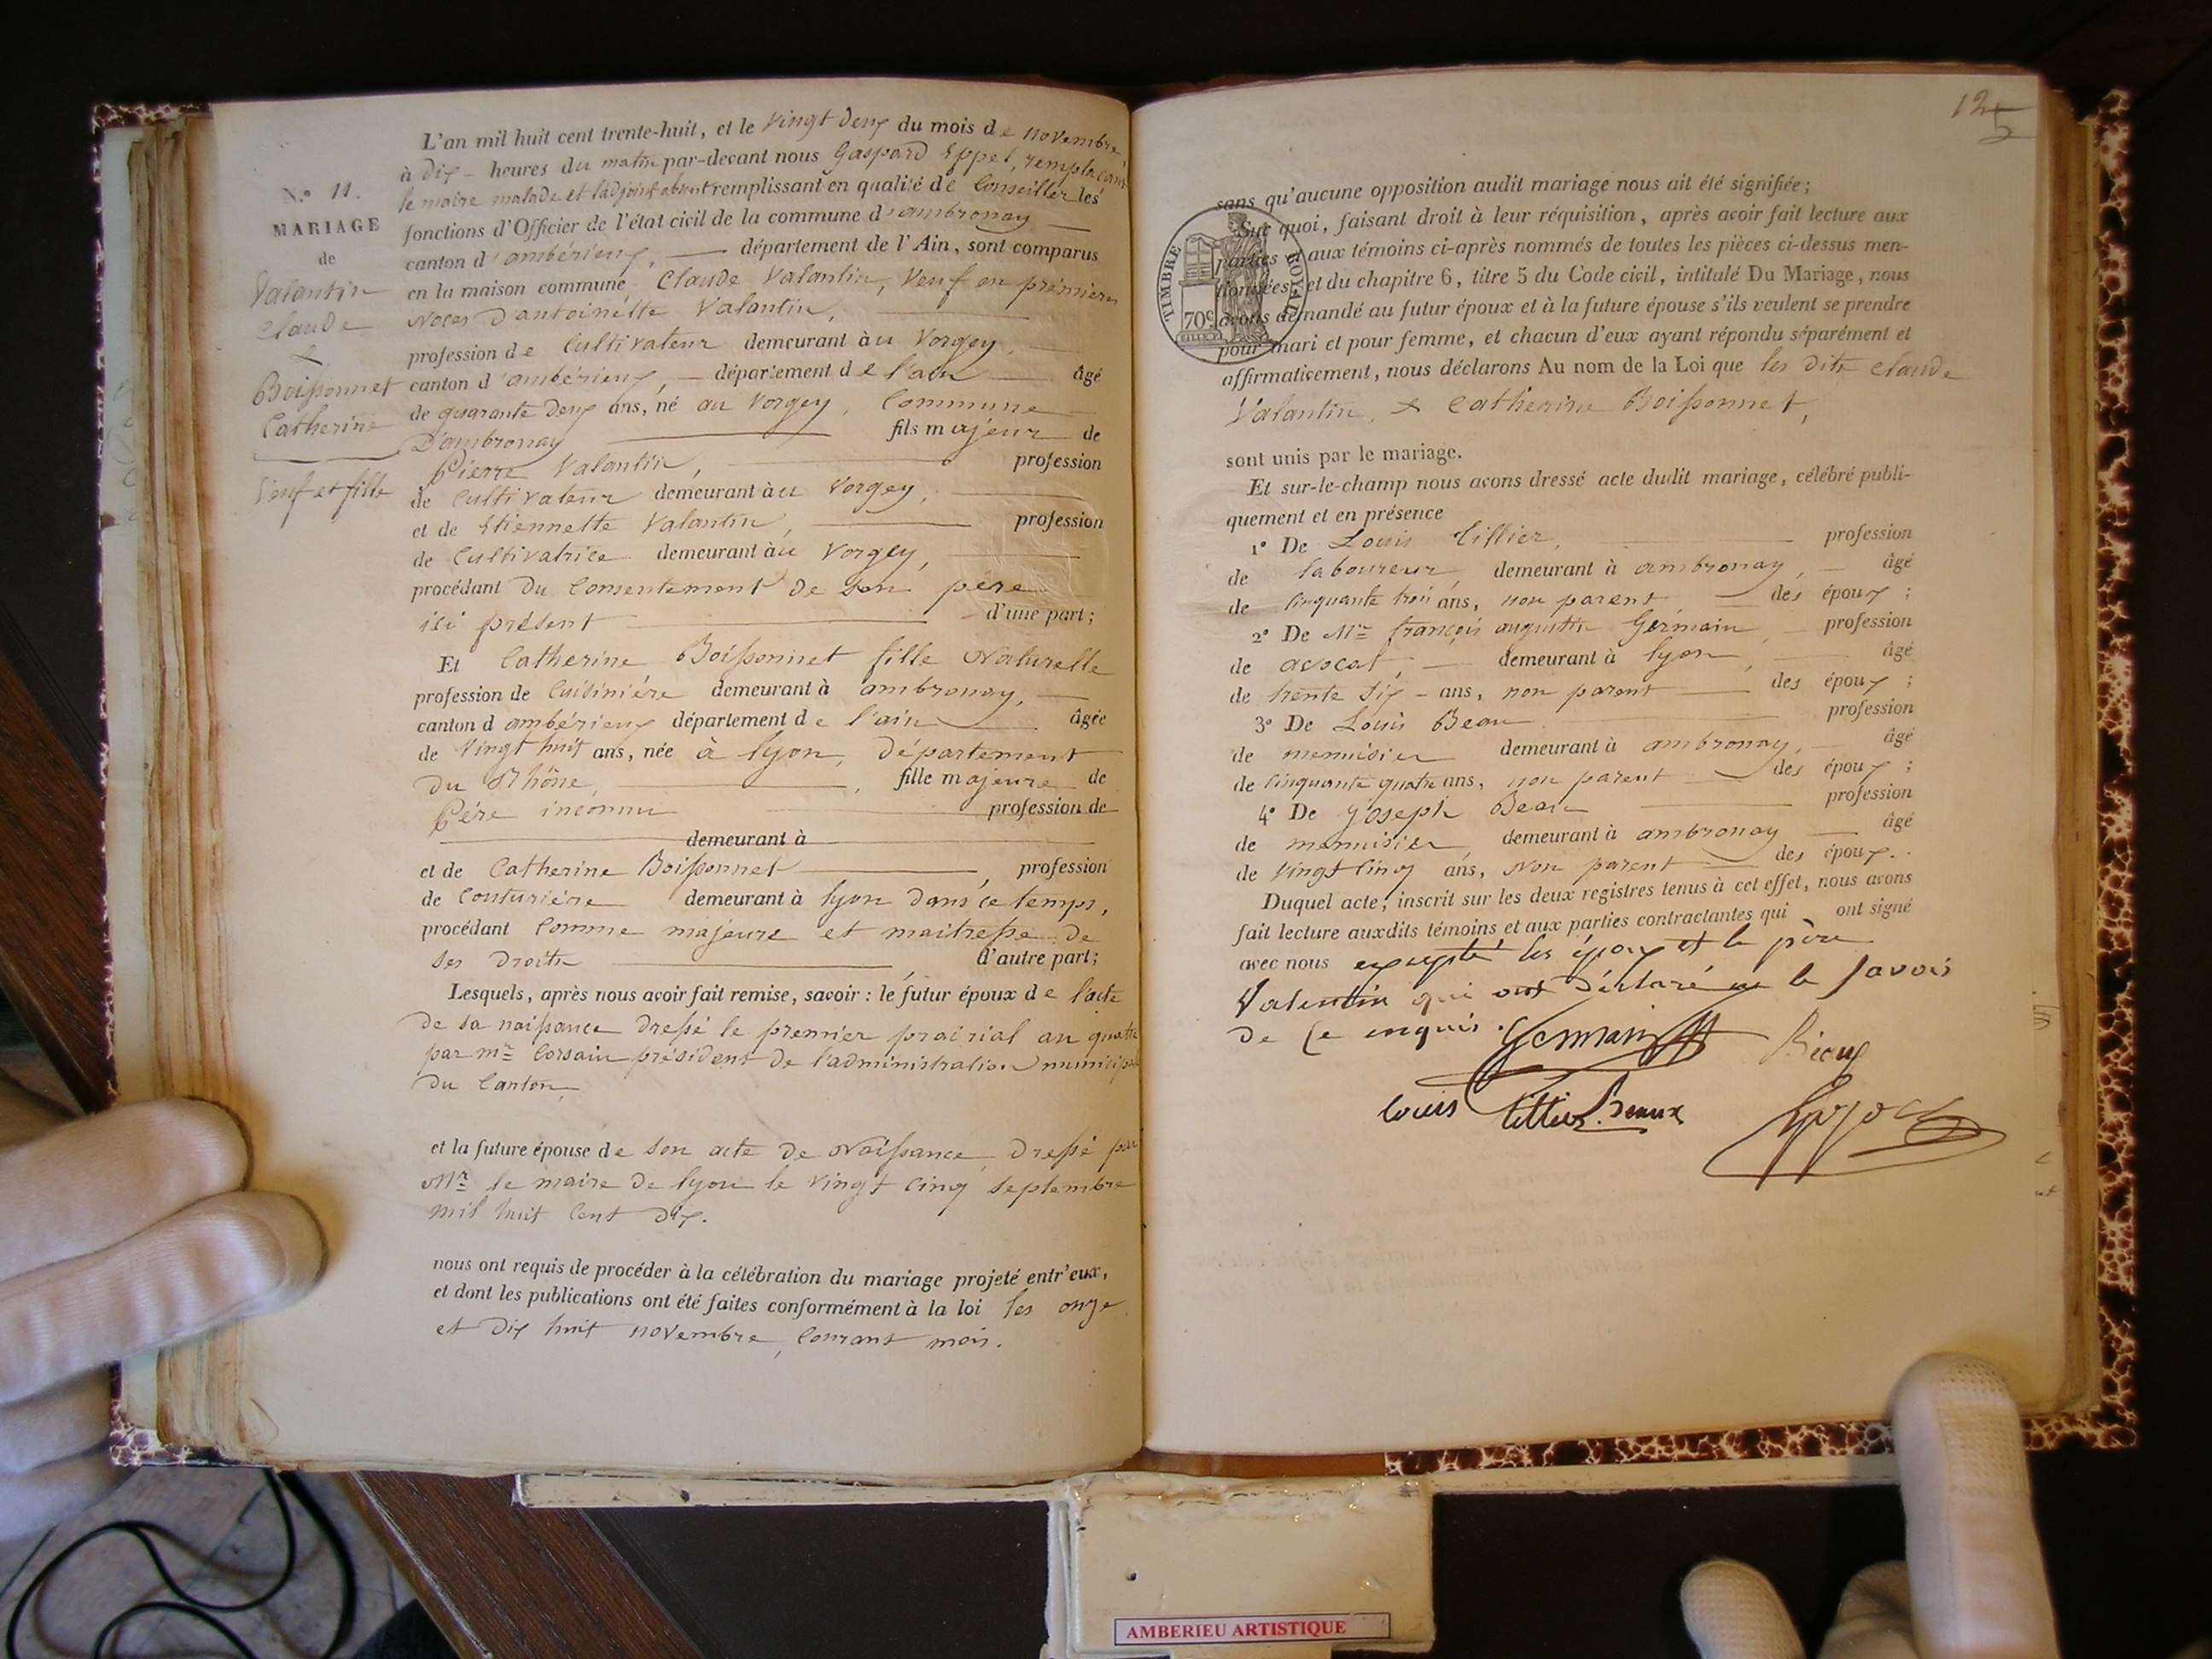 N.° 11.
MARIAGE
de
Valantin
Claude
&
Boissonnet
Catherine
Veuf et fille
L'an mil huit cent trente-huit, et le vingt deux du mois de novembre,
à dix heures du matin par-devant nous Gaspard Eppel, remplacant
le maire malade et l'adjoint absent remplissant en qualité de Conseiller les
fonctions d'Officier de l'état civil de la commune d'ambronay
canton d'ambérieux, département de l'Ain, sont comparus
en la maison commune Claude Valantin, Veuf en premieres
Noces d'antoinette Valantin,
profession de Cultivateur demeurant au Vorgey,
canton d'ambérieux, département de l'ain âgé
de quarante deux ans, né au Vorgey, Commune
D'ambronay fils majeur de
Pierre Valantin, profession
de Cultivateur demeurant au Vorgey,
et de Etiennette Valantin, profession
de Cultivatrice demeurant àu Vorgey,
procédant du Consentement de son père
ici présent d'une part;
Et Catherine Boissonnet fille Naturelle
profession de Cuisinière demeurant à ambronay,
canton d'ambérieux département de l'ain âgée
de vingt huit ans, née à lyon, département
du Rhône, fille majeure de
Père inconnu profession de
demeurant à
et de Catherine Boissonnet, profession
de Couturière demeurant à lyon dans ce temps,
procédant Comme majeure et maitresse de
ses Droits d'autre part;
Lesquels, après nous avoir fait remise, savoir : le futur époux de l'acte
de sa naissance dressé le premier prairial an quatre
par mr Corsain président de l'administration municipale
du Canton
et la future épouse de son acte de Naissance, dressé par
Mr le maire de lyon le vingt cinq septembre
mil huit Cent dix.
nous ont requis de procéder à la célébration du mariage projeté entr'eux,
et dont les publications ont été faites conformément à la loi les onze
et dix huit novembre, Courant mois.
12
5
TIMBRE ROYAL
70c
sans qu'aucune opposition audit mariage nous ait été signifiée;
Sur quoi, faisant droit à leur réquisition, après avoir fait lecture aux
parties & aux témoins ci-après nommés de toutes les pièces ci-dessus men-
tionnées, et du chapitre 6, titre 5 du Code civil, intitulé Du Mariage, nous
avons demandé au futur époux et à la future épouse s'ils veulent se prendre
pour mari et pour femme, et chacun d'eux ayant répondu séparément et
affirmativement, nous déclarons Au nom de la Loi que les dits Claude
Valantin, & Catherine Boissonnet,
sont unis par le mariage.
Et sur-le-champ nous avons dressé acte dudit mariage, célébré publi-
quement et en présence
1° De Louis Tillier, profession
de laboureur, demeurant à ambronay, âgé
de Cinquante trois ans, non parent des époux;
2° De Mr françois augustin Germain, profession
de avocat, demeurant à lyon, âgé
de trente six ans, non parent des époux;
3° De Louis Beau profession
de menuisier demeurant à ambronay, âgé
de Cinquante quatre ans, non parent des époux;
4° De Joseph Beau profession
de menuisier, demeurant à ambronay âgé
de vingt Cinq ans, Non parent des époux.
Duquel acte, inscrit sur les deux registres tenus à cet effet, nous avons
fait lecture auxdits témoins et aux parties contractantes qui ont signé
avec nous excepté les époux et le père
Valentin qui ont déclaré ne le savoir
de ce enquis.
Germain
Beau
louis Tillier
Beaux